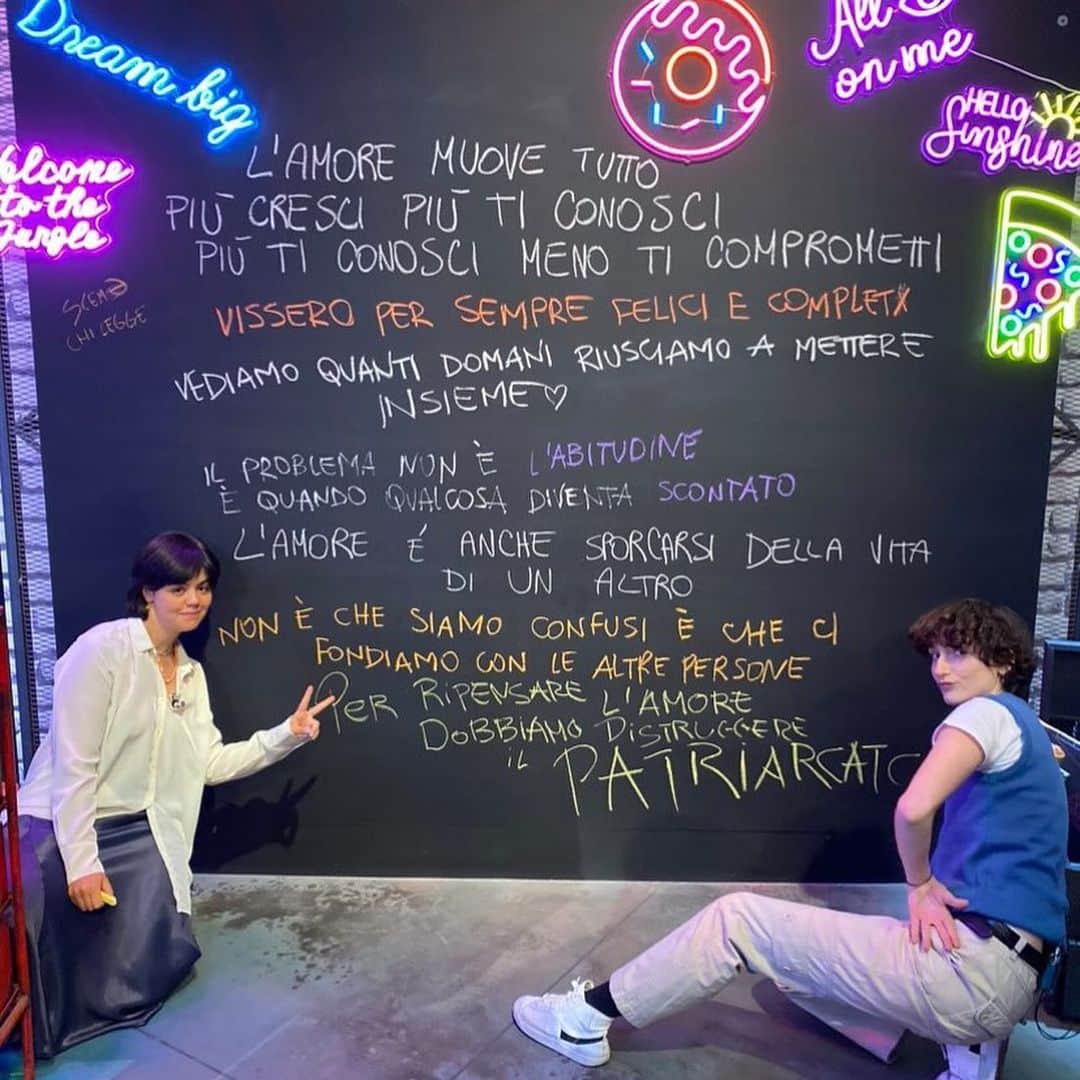 Dream big
All
on me
HELLO
Sunshine
Welcome
to the
Jungle
L'AMORE MUOVE TUTTO
PIÙ CRESCI PIÙ TI CONOSCI
PIÙ TI CONOSCI MENO TI COMPROMETTI
SCEMO
CHI LEGGE
VISSERO PER SEMPRE FELICI E COMPLETX
VEDIAMO QUANTI DOMANI RIUSCIAMO A METTERE
INSIEME♡
IL PROBLEMA NON È L'ABITUDINE
È QUANDO QUALCOSA DIVENTA SCONTATO
L'AMORE É ANCHE SPORCARSI DELLA VITA
DI UN ALTRO
NON È CHE SIAMO CONFUSI È CHE CI
FONDIAMO CON LE ALTRE PERSONE
PER RIPENSARE L'AMORE
DOBBIAMO DISTRUGGERE
IL PATRIARCATO